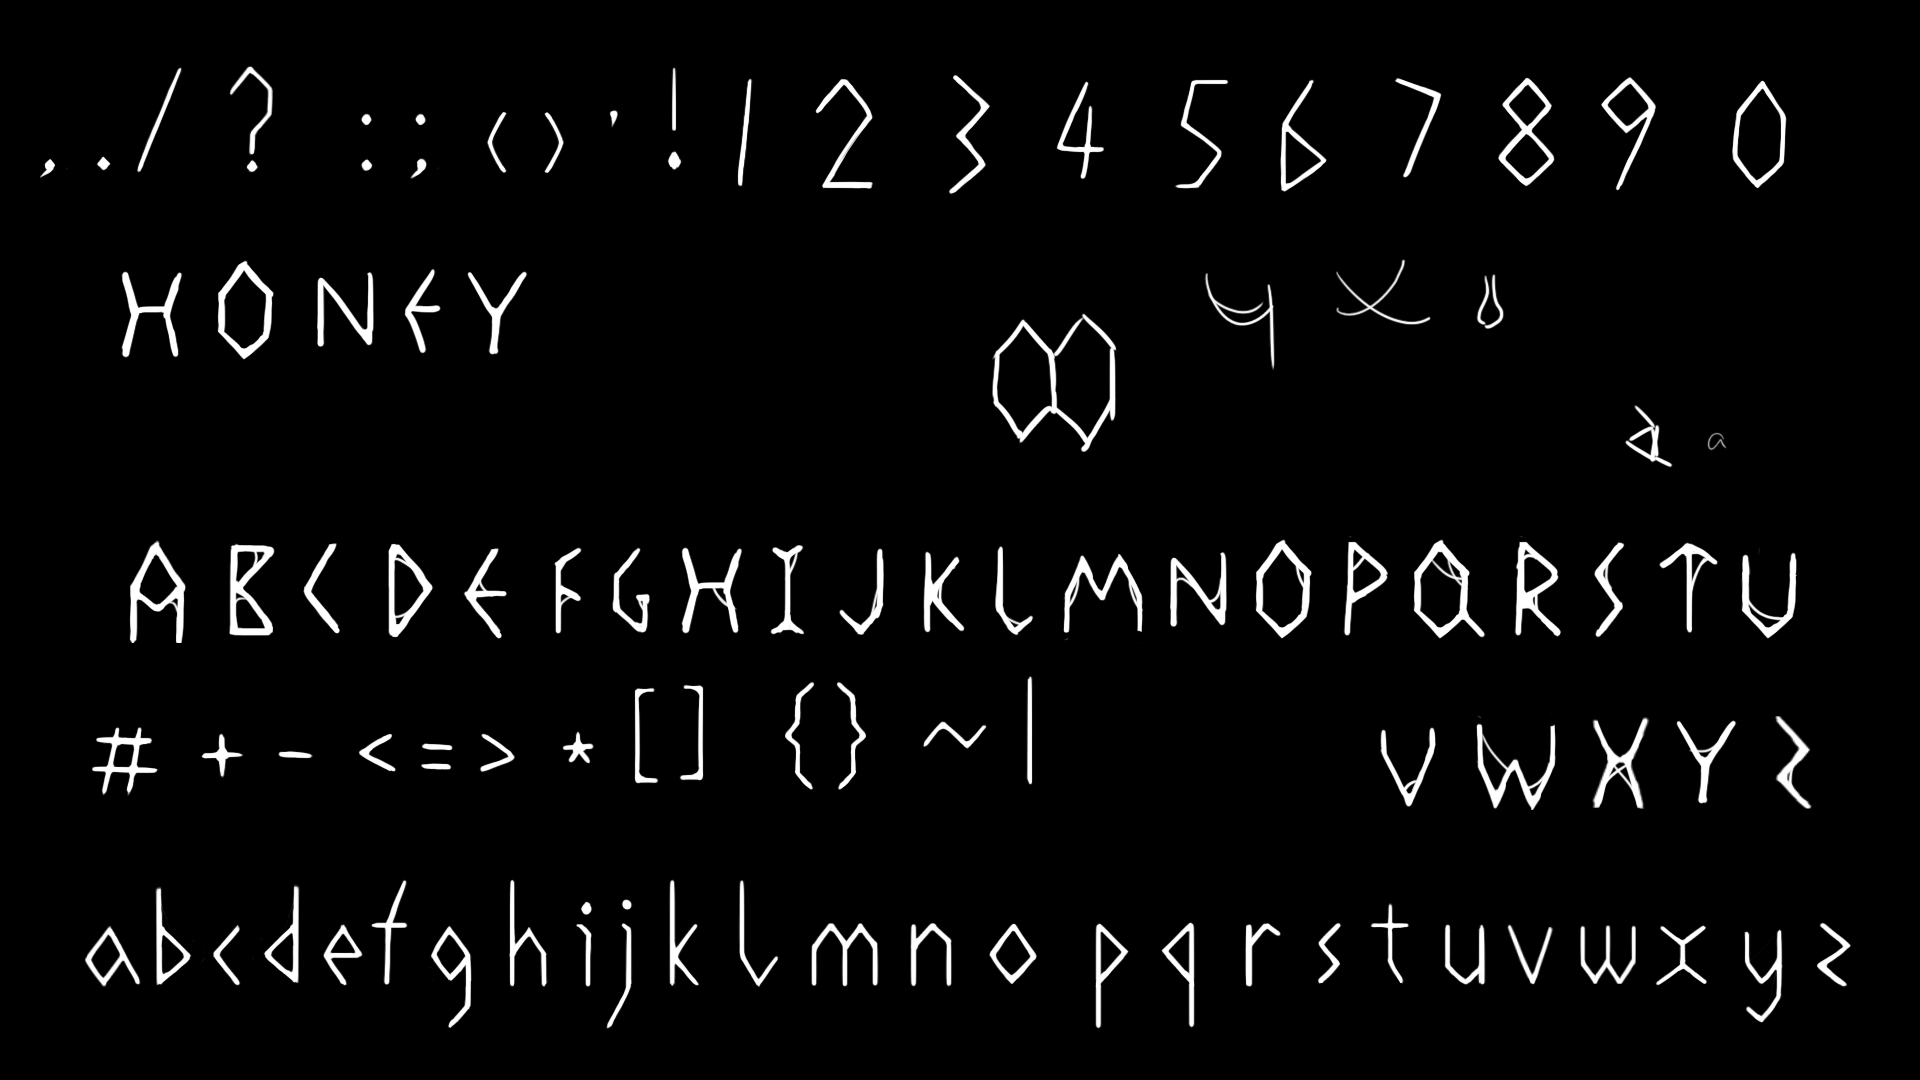 , . / ? : ; ( ) ' ! 1 2 3 4 5 6 7 8 9 0
HONEY
y x
a a
A B C D E F G H I J K L M N O P Q R S T U
# + - < = > * [ ] { } ~ | V W X Y Z
a b c d e f g h i j k l m n o p q r s t u v w x y z